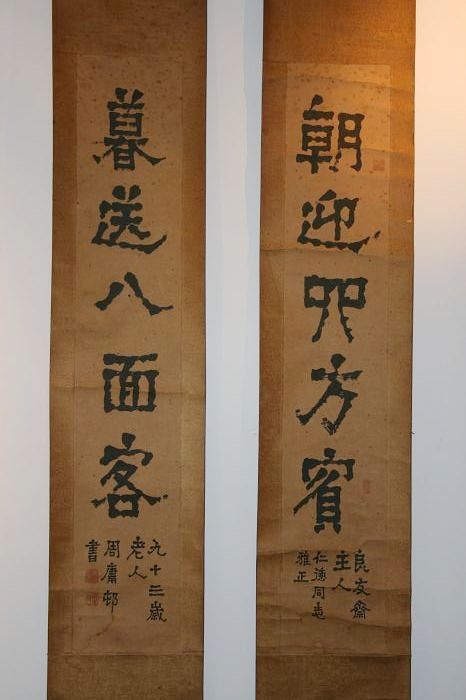 朝迎四方賓
良友齋
主人
仁德同志
雅正
暮送八面客
九十三歲
老人
周庸邨
書